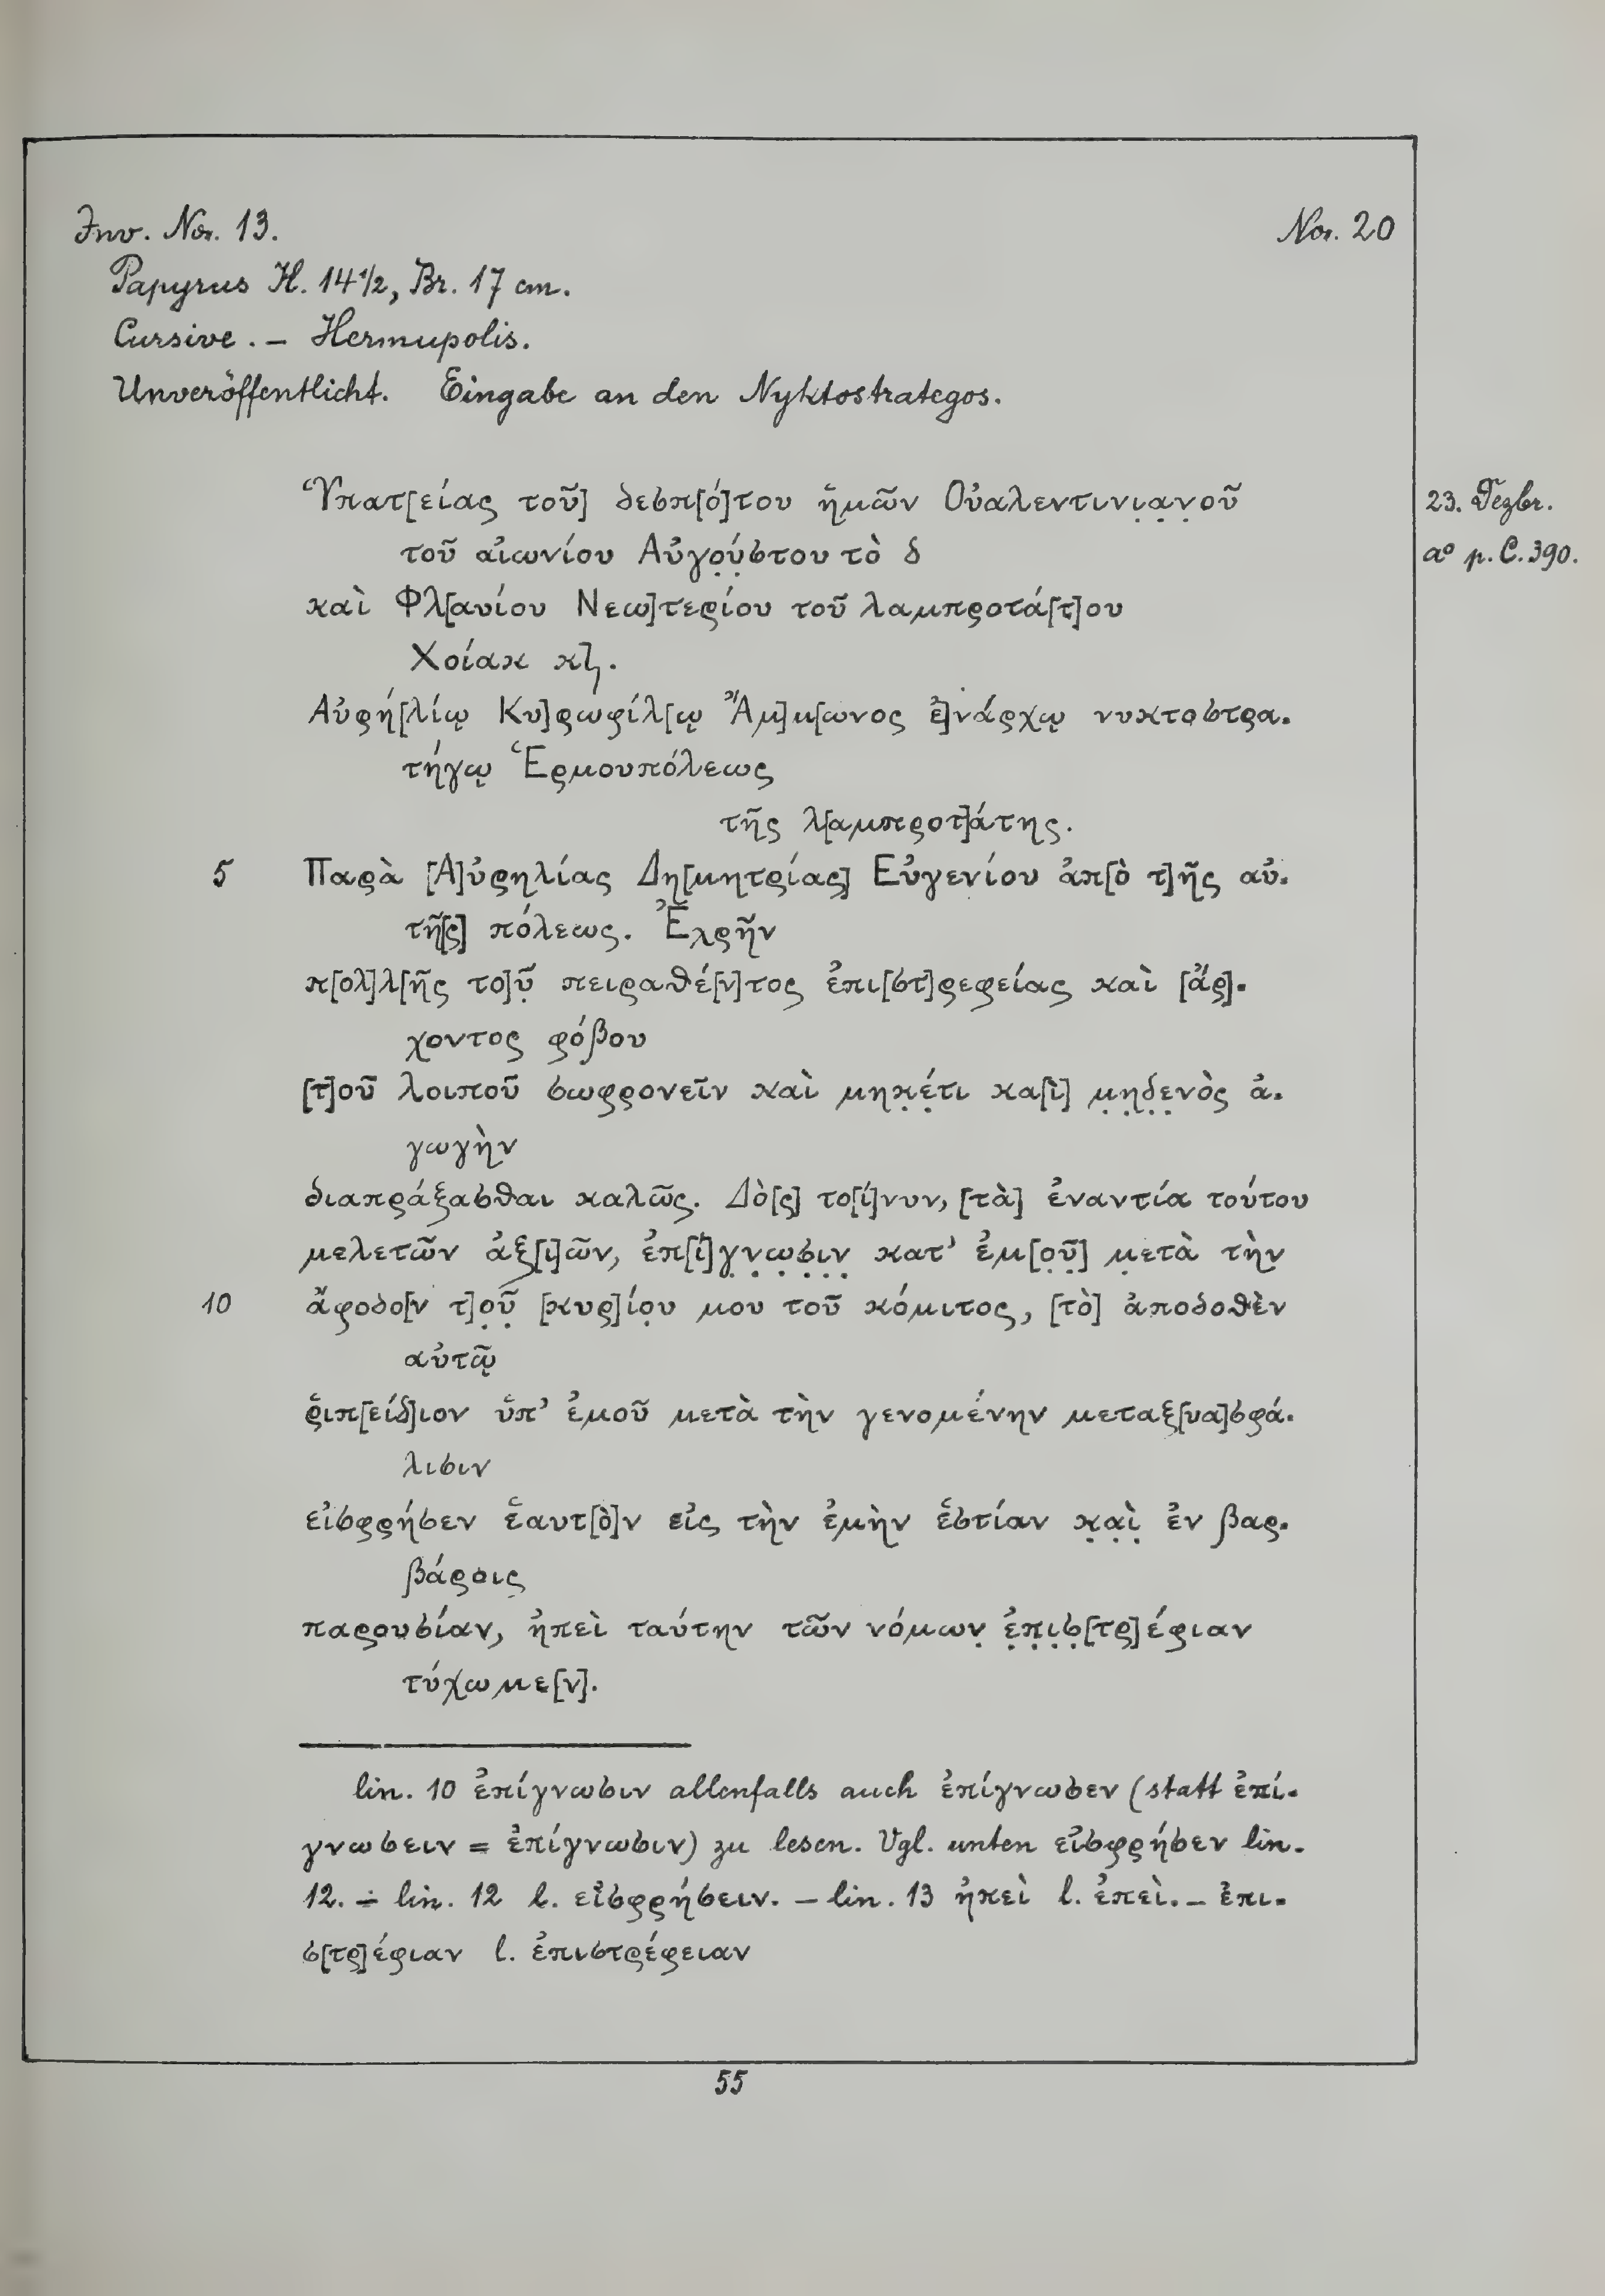 Inv. No. 13.
No. 20
Papyrus H. 14½, Br. 17 cm.
Cursive. – Hermupolis.
Unveröffentlicht. Eingabe an den Nyktostrategos.
Ὑπατ[είας τοῦ] δεσπ[ό]του ἡμῶν Οὐαλεντινι̣α̣ν̣οῦ
23. Dezbr.
τοῦ αἰωνίου Αὐγο̣ύ̣στου τὸ δ
aº p. C. 390.
καὶ Φλ[αυίου Νεω]τερίου τοῦ λαμπροτά[τ]ου
Χοίακ κζ.
Αὐρή[λίῳ Κυ]ρωφίλ[ῳ Ἄμ]μ[ωνος ἐ]νάρχῳ νυκτοστρα-
τήγῳ Ἑρμουπόλεως
τῆς λ[αμπροτ]άτης.
5 Παρὰ [Α]ὐρηλίας Δη[μητρίας] Εὐγενίου ἀπ[ὸ τ]ῆς αὐ-
τῆ[ς] πόλεως. Ἐχρῆν
π[ολ]λ[ῆς το]ῦ̣ πειραθέ[ν]τος ἐπι[στ]ρεφείας καὶ [ἄρ]-
χοντος φόβου
[τ]οῦ λοιποῦ σωφρονεῖν καὶ μηκ̣έ̣τι κα[ὶ] μ̣η̣δ̣ε̣νὸς ἀ-
γωγὴν
διαπράξασθαι καλῶς. Δὸ[ς] το[ί]νυν, [τὰ] ἐναντία τούτου
μελετῶν ἀξ[ι]ῶν, ἐπ[ί]γ̣ν̣ω̣σ̣ι̣ν̣ κατ’ ἐμ[ο̣ῦ̣] μ̣ετὰ τὴν
10 ἄφοδο[ν τ]ο̣ῦ̣ [κυρ]ίο̣υ μου τοῦ κόμιτος, [τὸ] ἀποδοθὲν
αὐτῷ
ῥιπ[είδ]ιον ὑπ’ ἐμοῦ μετὰ τὴν γενομένην μεταξ[υα]σφά-
λισιν
εἰσφρήσεν ἑαυτ[ὸ]ν εἰς τὴν ἐμὴν ἑστίαν κ̣α̣ὶ̣ ἐν βαρ-
βάροις
παρουσίαν, ἠπεὶ ταύτην τῶν νόμων̣ ἐ̣π̣ι̣σ̣[τρ]έφιαν
τύχωμε[ν].
lin. 10 ἐπίγνωσιν allenfalls auch ἐπίγνωσεν (statt ἐπί-
γνωσειν = ἐπίγνωσιν) zu lesen. Vgl. unten εἰσφρήσεν lin.
12. – lin. 12 l. εἰσφρήσειν. – lin. 13 ἠπεὶ l. ἐπεὶ. – ἐπι-
σ[τρ]έφιαν l. ἐπιστρέφειαν
55